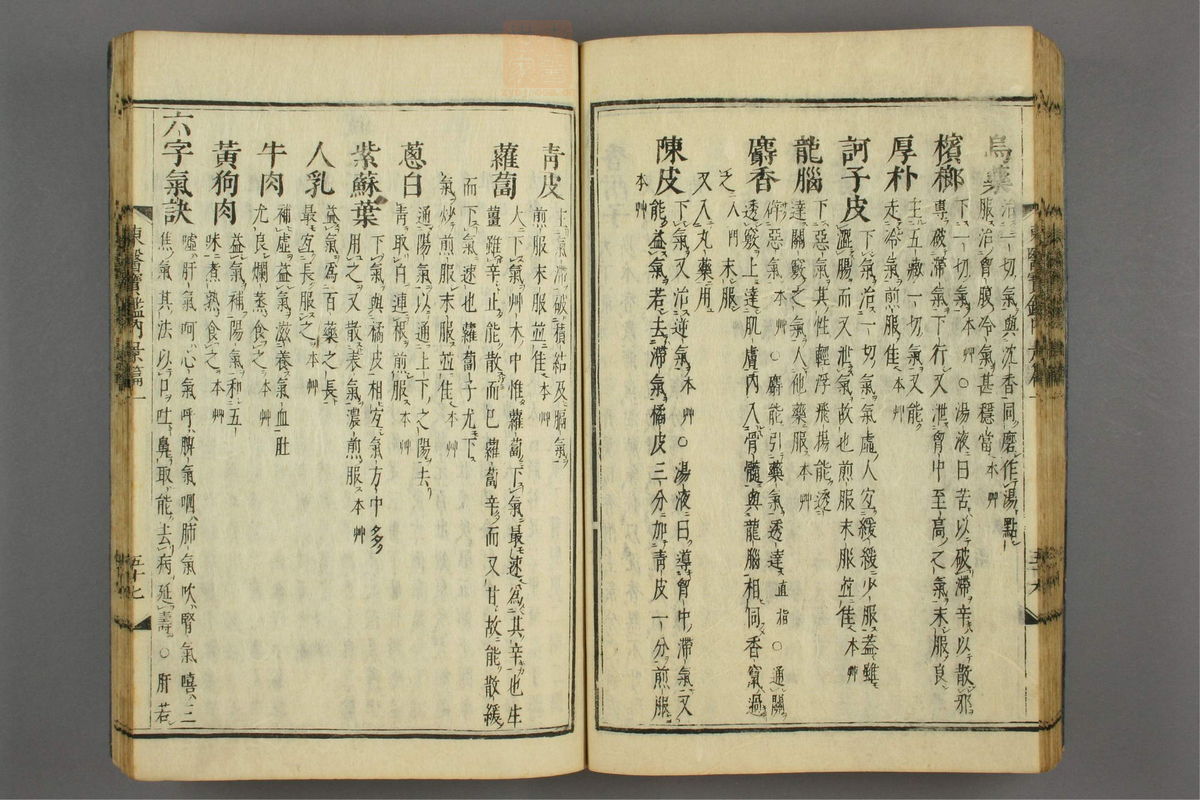 烏藥
治一切氣與沈香同磨作湯點
服治胷腹冷氣甚穩當本艸
檳榔
下一切氣本艸○湯液曰苦以破滯辛以散邪
專破滯氣下行又泄胷中至高之氣末服良
厚朴
主五藏一切氣又能
走冷氣煎服佳本艸
訶子皮
下氣治一切氣氣虛人宜緩緩少服蓋雖
澀腸而又泄氣故也煎服末服並佳本艸
龍腦
下惡氣其性輕浮飛揚能透
達關竅之氣入他藥服本艸
麝香
辟惡氣本艸○麝能引藥氣透達直指○通關
透竅上達肌膚內入骨髓與龍腦相同香竄過
之入門末服
又入丸藥用
陳皮
下氣又治逆氣本艸○湯液曰導胷中滯氣又
能益氣若去滯氣橘皮三分加青皮一分煎服
本艸
青皮
主氣滯破積結及膈氣
煎服末服並佳本艸
蘿蔔
大下氣艸木中惟蘿蔔下氣最速爲其辛也生
薑雖辛止能散而已蘿蔔辛而又甘故能散緩
而下氣速也蘿蔔子尤下
氣炒煎服末服並佳本艸
蔥白
通陽氣以通上下之陽去
青取白連根煎服本艸
紫蘇葉
下氣與橘皮相宜氣方中多
用之又散表氣濃煎服本艸
人乳
益氣爲百藥之長
最宜長服之本艸
牛肉
補虛益氣滋養氣血肚
尤良爛蒸食之本艸
黃狗肉
益氣補陽氣和五
味煮熟食之本艸
六字氣訣
噓肝氣呵心氣呼脾氣呬肺氣吹腎氣嘻三
焦氣其法以口吐鼻取能去病延壽○肝若
東醫寶鑑內景篇一
五十七